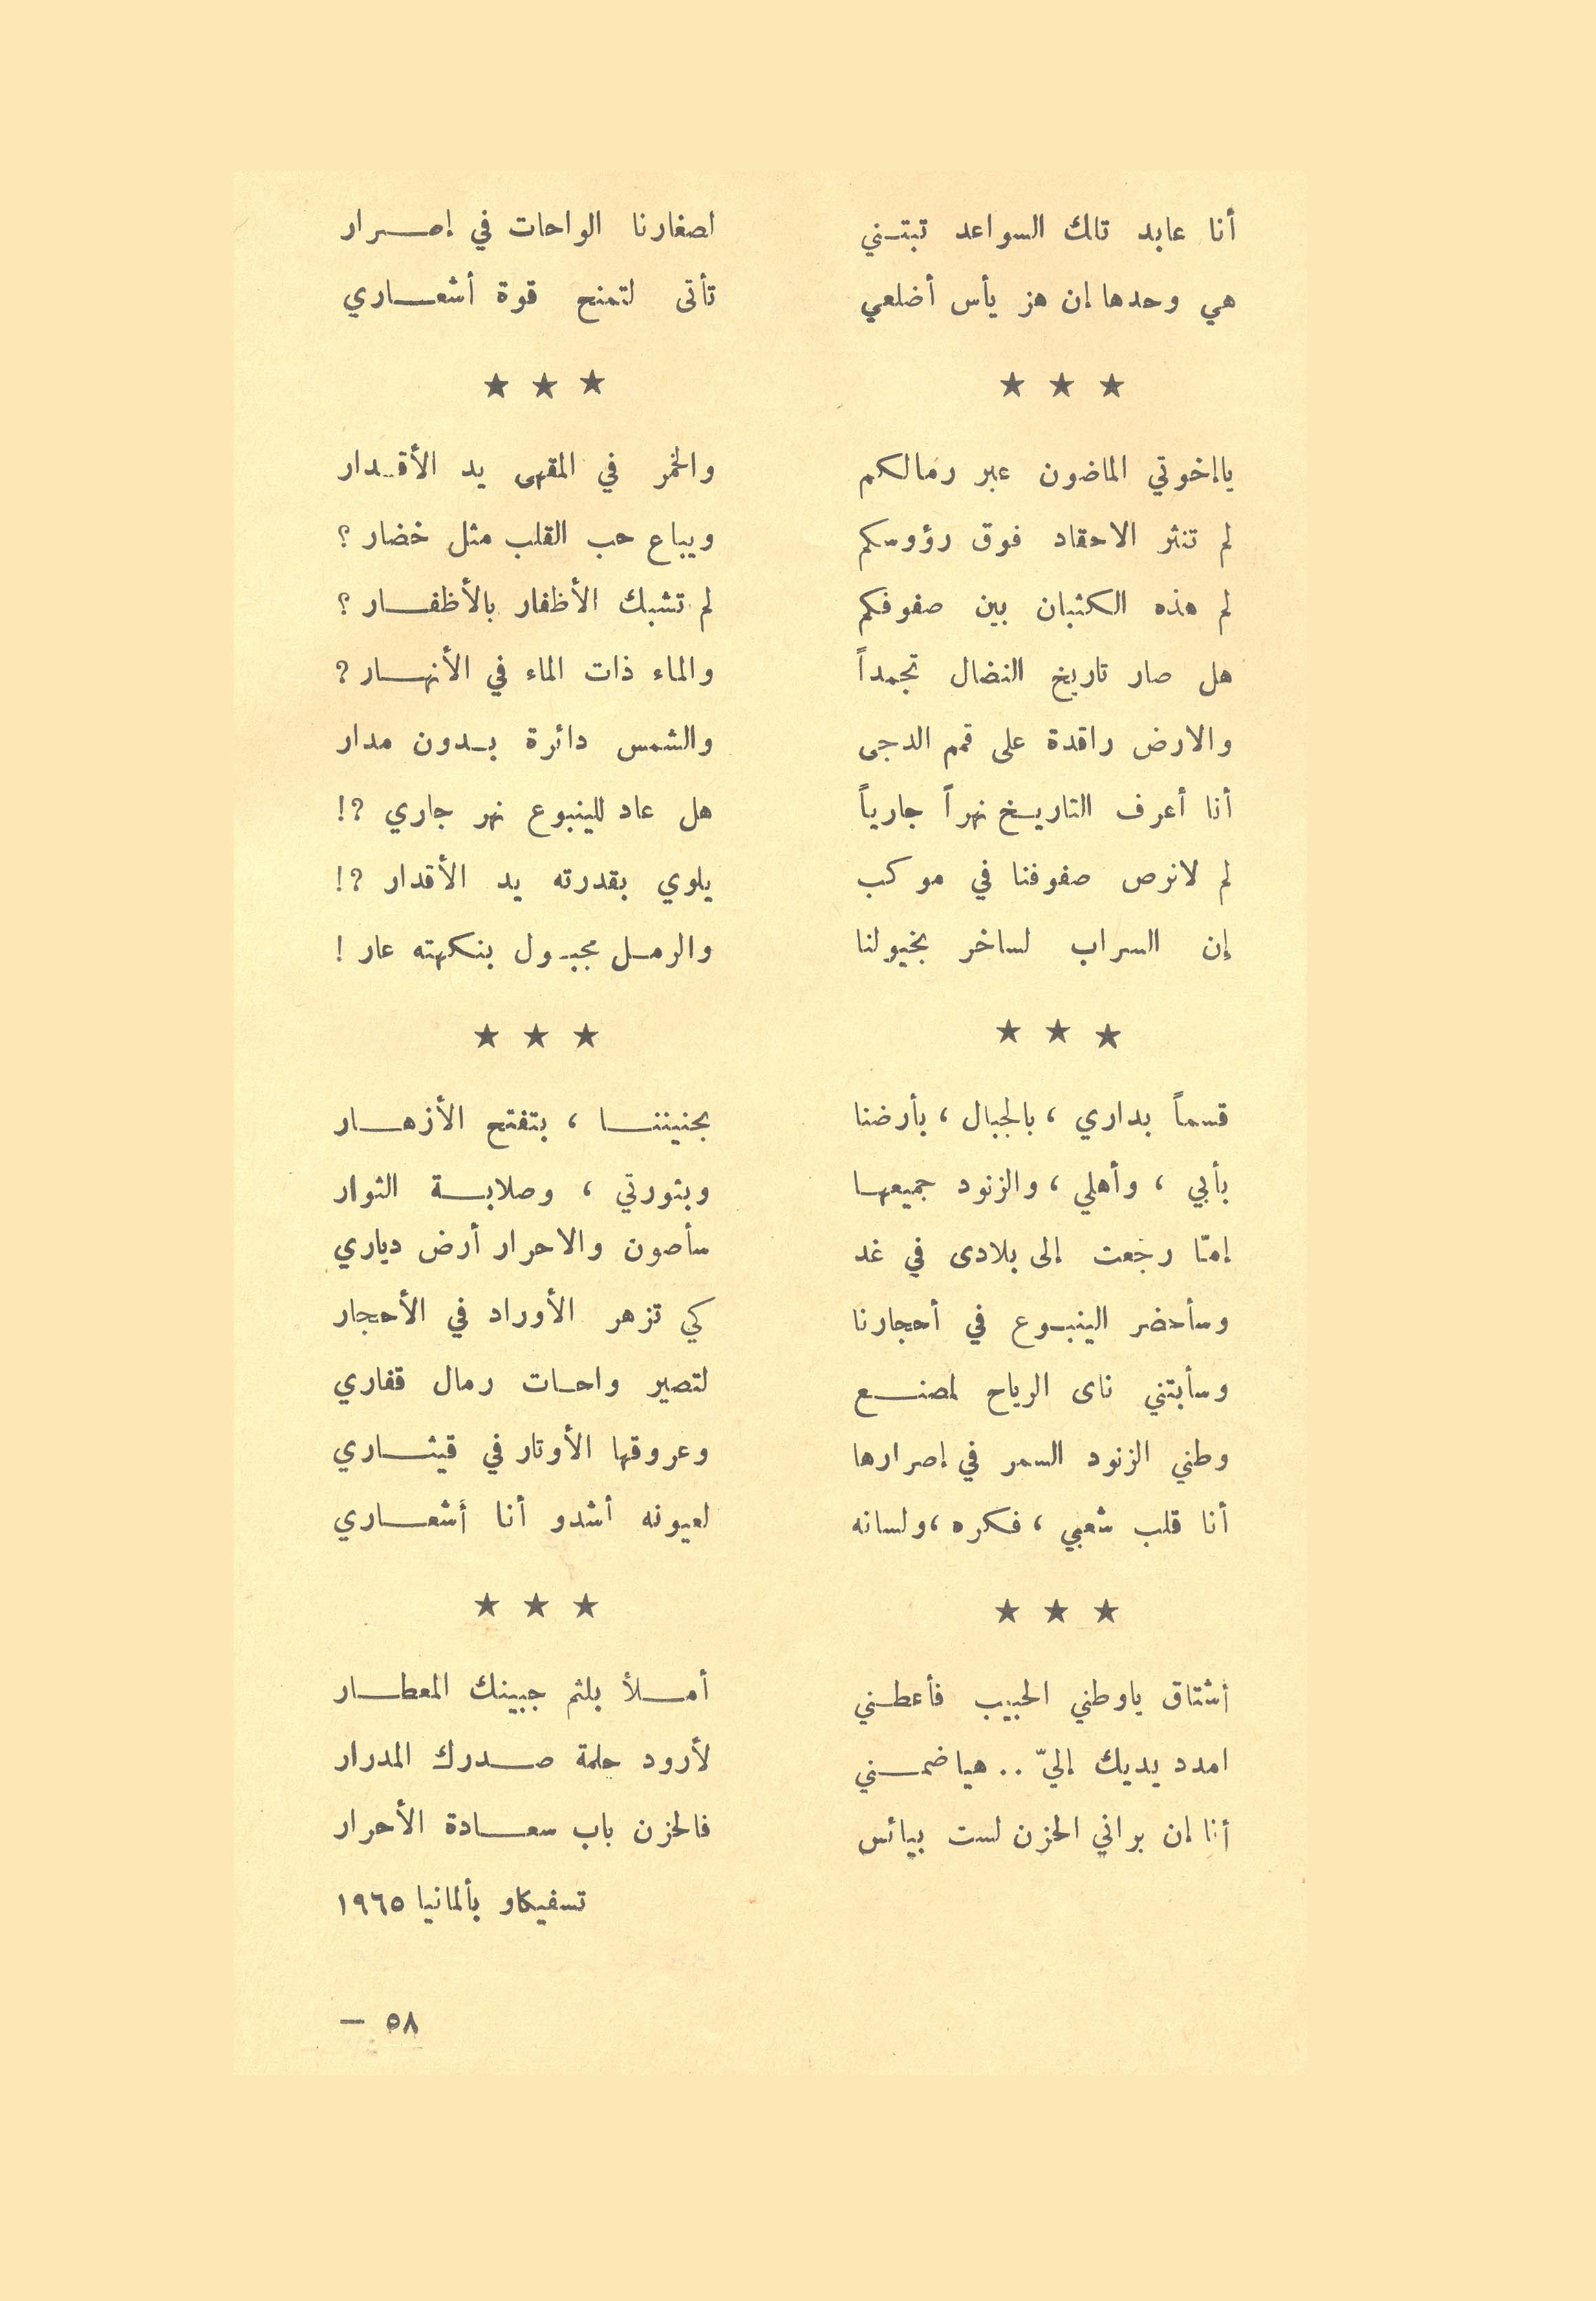 أنا عابد تلك السواعد تبتني لصغارنا الواحات في إصرار
هي وحدها إن هز يأس أضلعي تأتى لتمنح قوة أشعاري
★ ★ ★ ★ ★ ★
ياإخوتي الماضون عبر رمالكم والخمر في المقهى يد الأقدار
لم تنثر الاحقاد فوق رؤوسكم ويباع حب القلب مثل خضار ؟
لم هذه الكثبان بين صفوفكم لم تشبك الأظفار بالأظفار ؟
هل صار تاريخ النضال تجمداً والماء ذات الماء في الأنهار ؟
والارض راقدة على قمم الدجى والشمس دائرة بدون مدار
أنا أعرف التاريخ نهراً جارياً هل عاد للينبوع نهر جاري ؟!
لم لانرص صفوفنا في موكب يلوي بقدرته يد الأقدار ؟!
إن السراب لساخر بخيولنا والرمل مجبول بنكهته عار !
★ ★ ★ ★ ★ ★
قسماً بداري ، بالجبال ، بأرضنا بجنيننا ، بتفتح الأزهار
بأبي ، وأهلي ، والزنود جميعها وبثورتي ، وصلابة الثوار
إمّا رجعت إلى بلادى في غد سأصون والاحرار أرض دياري
وسأحضر الينبوع في أحجارنا كي تزهر الأوراد في الأحجار
وسأبتني ناى الرياح لمصنع لتصير واحات رمال قفاري
وطني الزنود السمر في إصرارها وعروقها الأوتار في قيثاري
أنا قلب شعبي ، فكره ، ولسانه لعيونه أشدو أنا أشعاري
★ ★ ★ ★ ★ ★
أشتاق ياوطني الحبيب فأعطني أملأ بلثم جبينك المعطار
امدد يديك إليّ .. هيا ضمني لأرود حلمة صدرك المدرار
أنا إن براني الحزن لست بيائس فالحزن باب سعادة الأحرار
تسفيكاو بألمانيا ١٩٦٥
٥٨ —